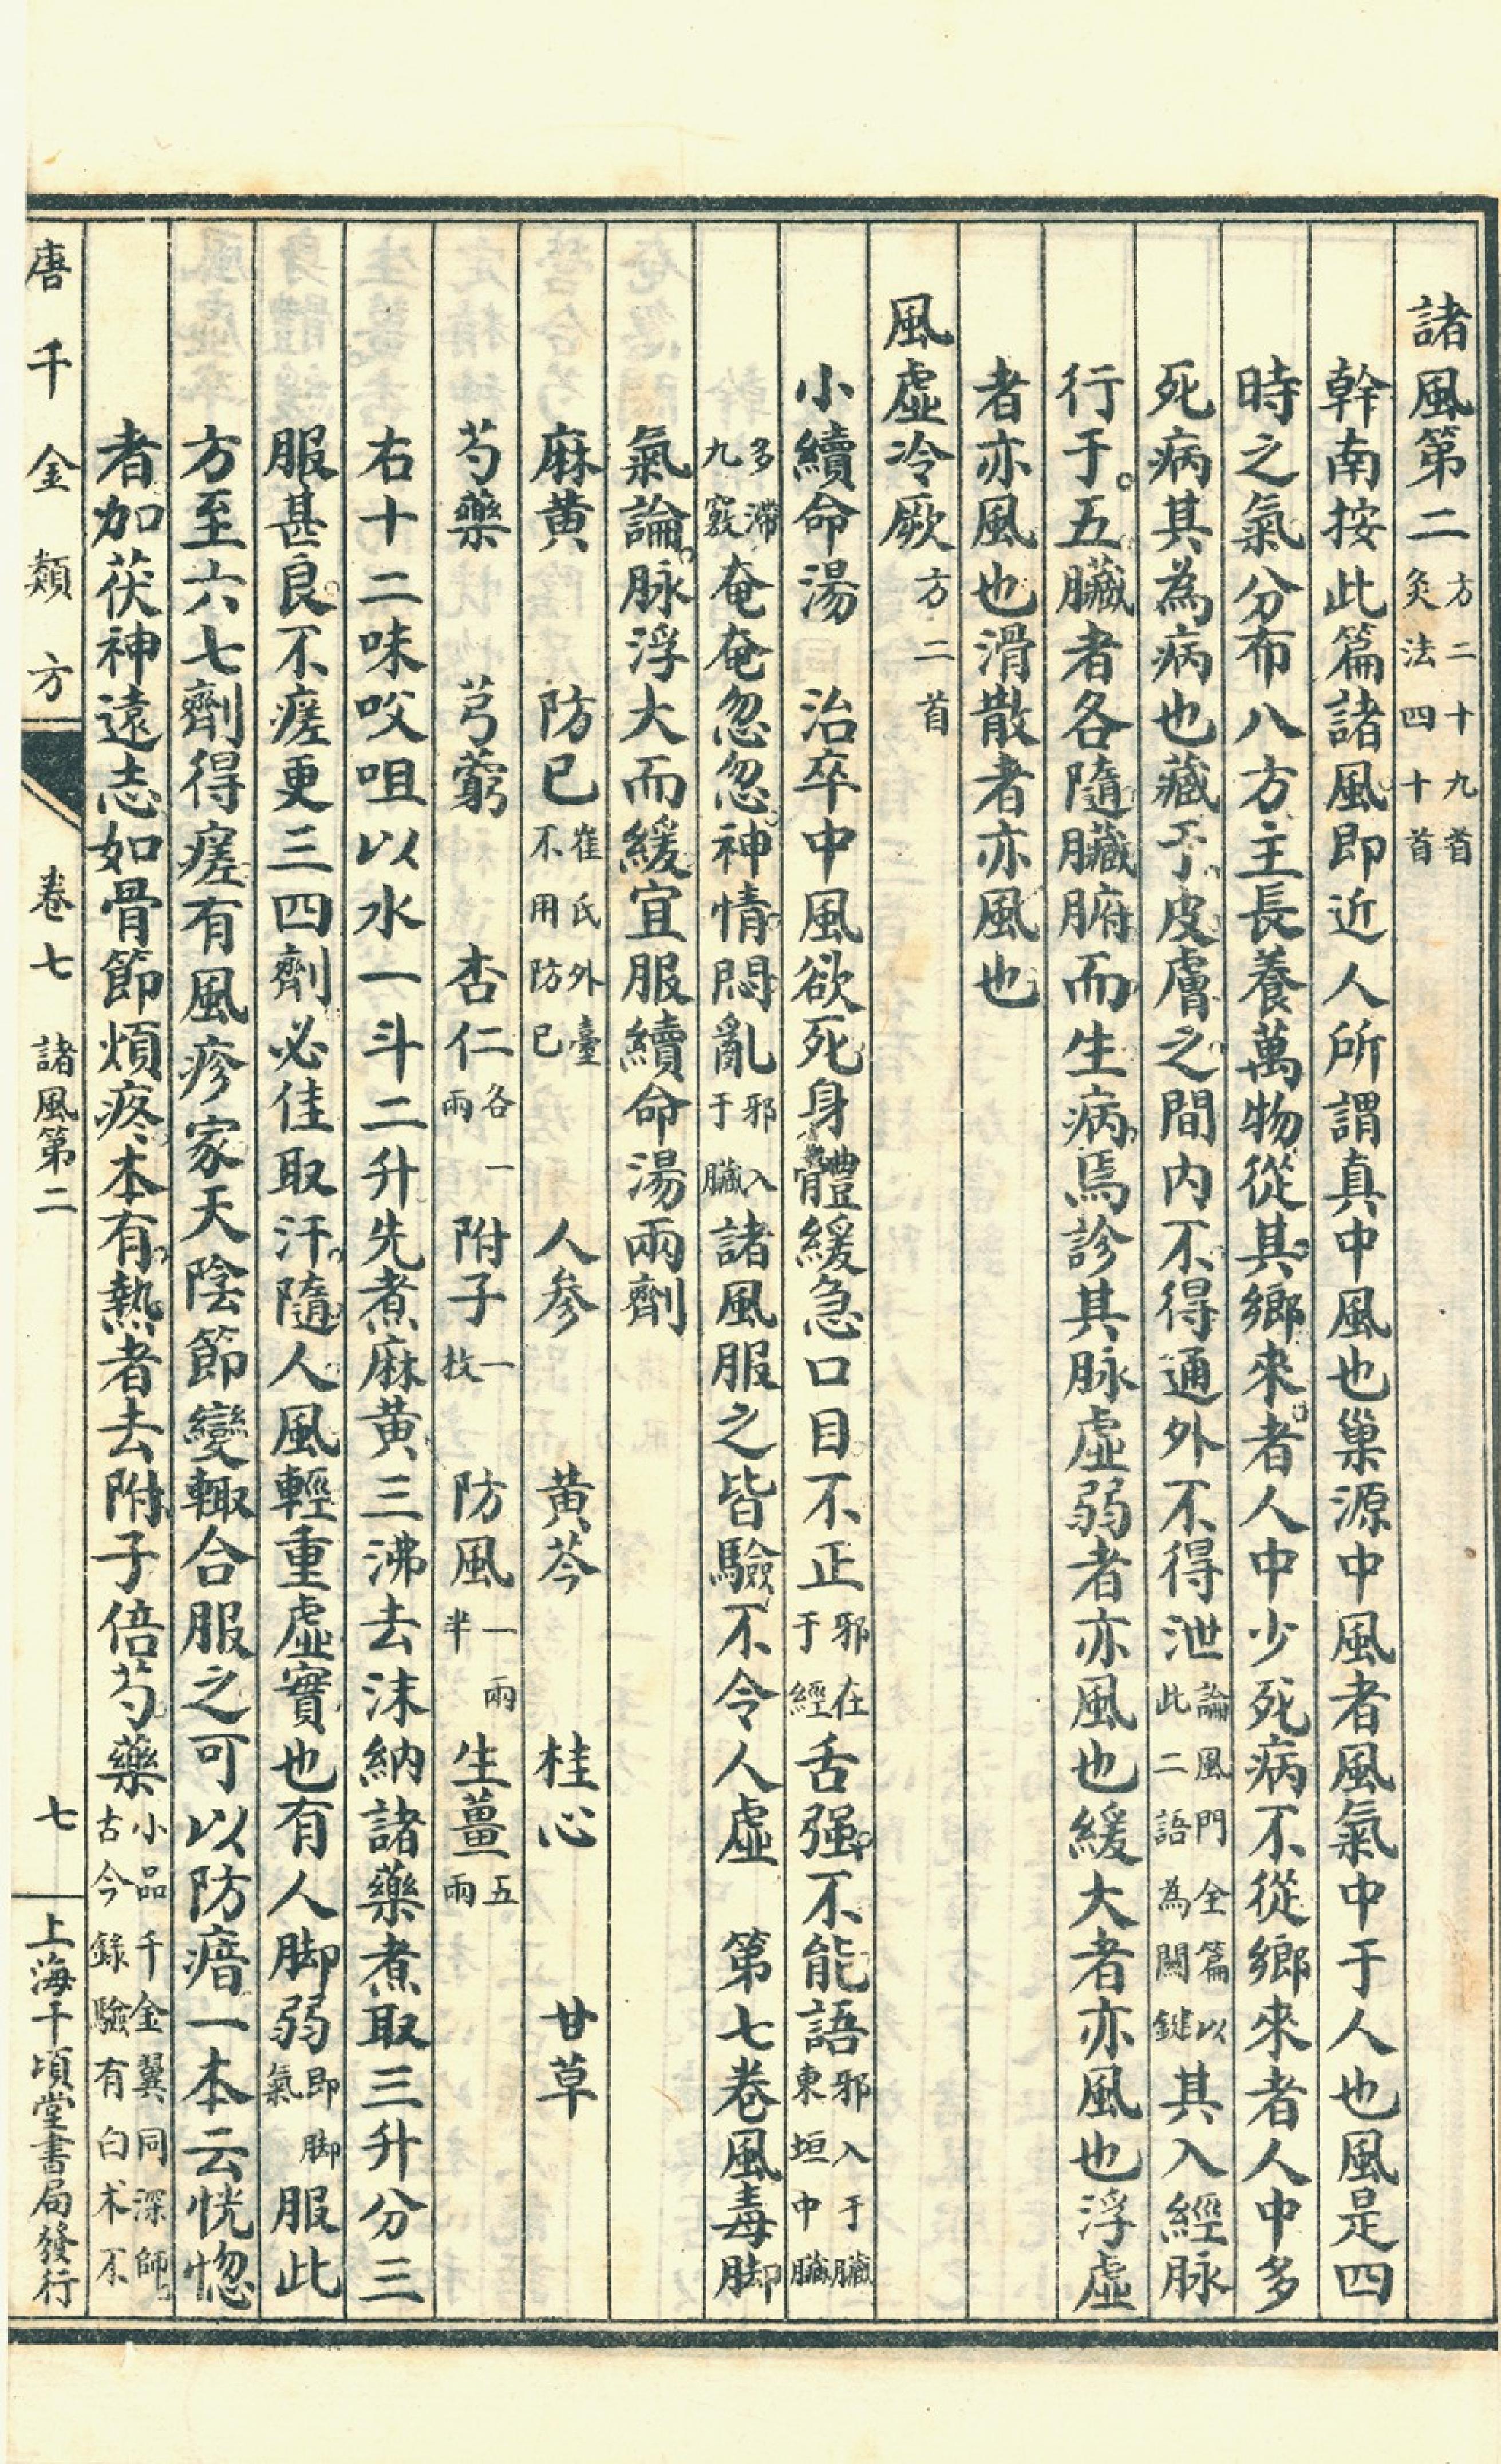 諸風第二方二十九首灸法四十首
幹南按此篇諸風即近人所謂真中風也巢源中風者風氣中于人也風是四
時之氣分布八方主長養萬物從其鄉來者人中少死病不從鄉來者人中多
死病其為病也藏于皮膚之間內不得通外不得泄論風門全篇以此二語為關鍵其入經脉
行于五臟者各隨臟腑而生病焉診其脉虛弱者亦風也緩大者亦風也浮虛
者亦風也滑散者亦風也
風虛冷厥方二首
小續命湯 治卒中風欲死身體緩急口目不正邪在于經舌强不能語邪入于臟東垣中臟
多滯九竅奄奄忽忽神情悶亂邪入于臟諸風服之皆驗不令人虛 第七卷風毒脚
氣論脉浮大而緩宜服續命湯兩劑
麻黄 防已崔氏外臺不用防已 人參 黄芩 桂心 甘草
芍藥 芎藭 杏仁各一兩 附子一枚 防風一兩半 生薑五兩
右十二味㕮咀以水一斗二升先煮麻黄三沸去沫納諸藥煮取三升分三
服甚良不瘥更三四劑必佳取汗隨人風輕重虛實也有人脚弱即脚氣服此
方至六七劑得瘥有風疹家天陰節變輙合服之可以防瘖一本云恍惚
者加茯神遠志如骨節煩疼本有熱者去附子倍芍藥小品千金翼同深師古今錄驗有白朮不
唐千金類方 卷七 諸風第二 七 上海千頃堂書局發行